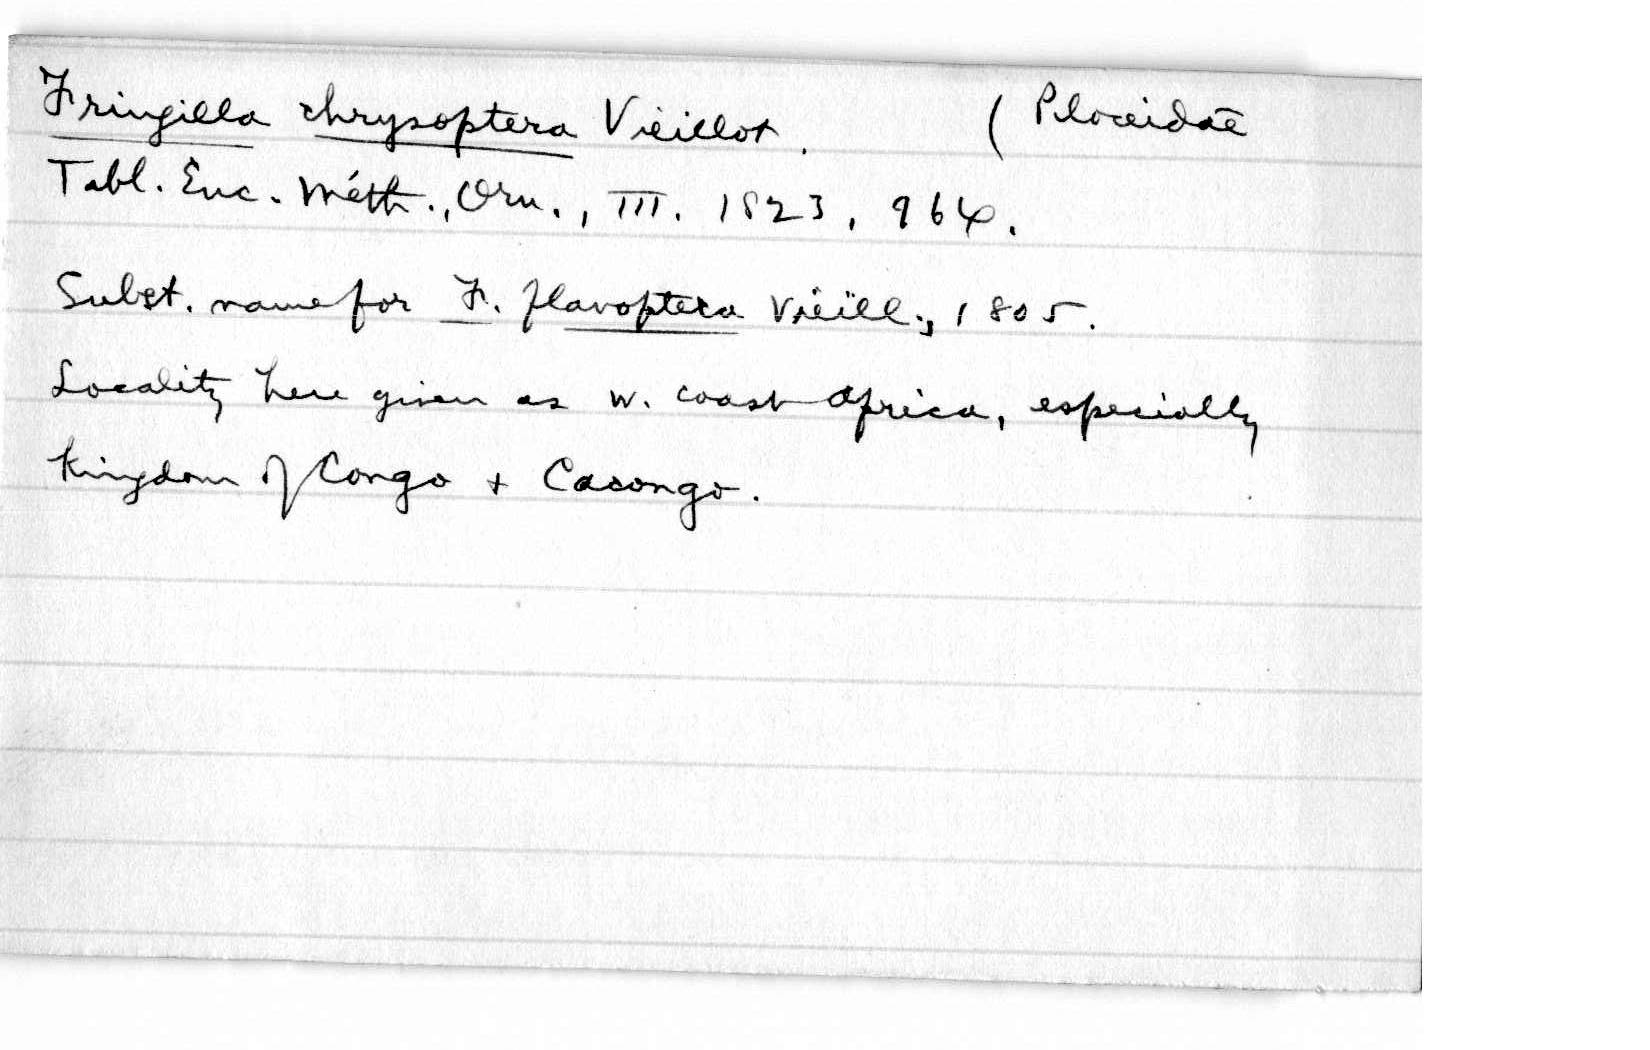 Fringilla chrysoptera Vieillot. ( Ploceidae
Tabl. Enc. Méth., Orn., III. 1823, 964.
Subst. name for F. flavoptera Vieill., 1805.
Locality here given as w. coast Africa, especially
Kingdom of Congo + Cacongo.